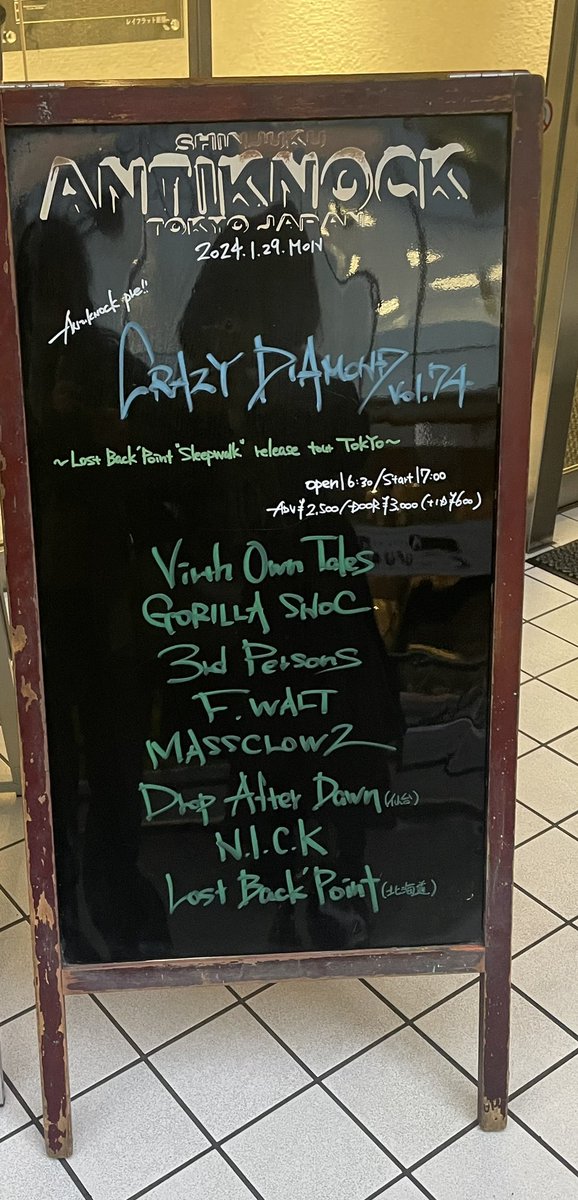 レイフラット新宿
SHINJUKU
ANTIKNOCK
TOKYO JAPAN
2024.1.29.MON
Antiknock pre!!
CRAZY DIAMOND Vol.74
~Lost Back'Point "Sleepwalk" release tour TOKYO~
open16:30/Start17:00
ADV¥2,500/DOOR¥3,000(+1D¥600)
Virth Own Tales
GORILLA SHOC
3rd Persons
F.WALT
MASSCLOWZ
Drop After Dawn(仙台)
N.I.C.K
Lost Back'Point(北海道)